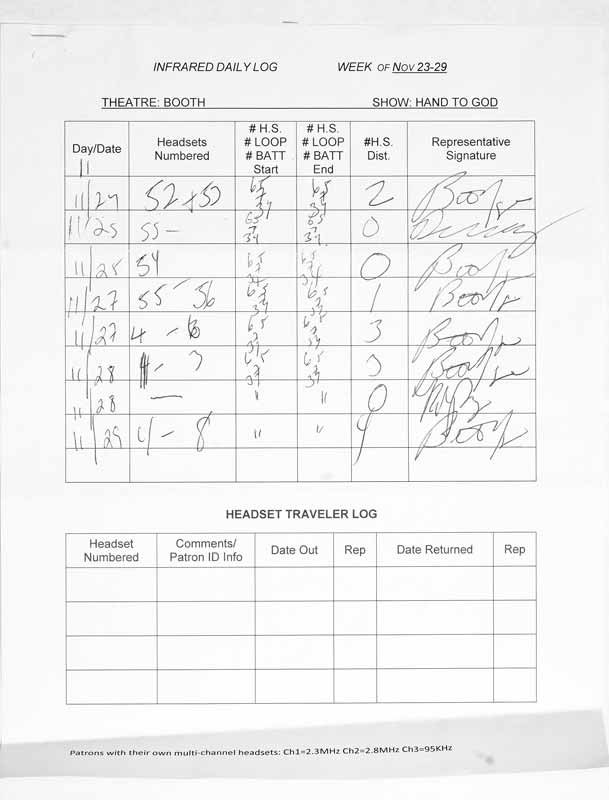 INFRARED DAILY LOG WEEK OF NOV 23-29
THEATRE: BOOTH SHOW: HAND TO GOD
Day/Date Headsets Numbered # H.S. # LOOP # BATT Start # H.S. # LOOP # BATT End #H.S. Dist. Representative Signature
11
11/24 52 + 53 65 7 34 65 7 34 2
11/25 55 - 65 7 34 65 7 34 0
11/25 54 65 7 34 65 7 34 0
11/27 55 - 56 65 7 34 65 7 34 1
11/27 4 - 6 65 7 34 65 7 34 3
11/28 1 - 3 65 7 34 65 7 34 3
11/28 — " " 0
11/29 4 - 8 " " 4
HEADSET TRAVELER LOG
Headset Numbered Comments/ Patron ID Info Date Out Rep Date Returned Rep
Patrons with their own multi-channel headsets: Ch1=2.3MHz Ch2=2.8MHz Ch3=95KHz